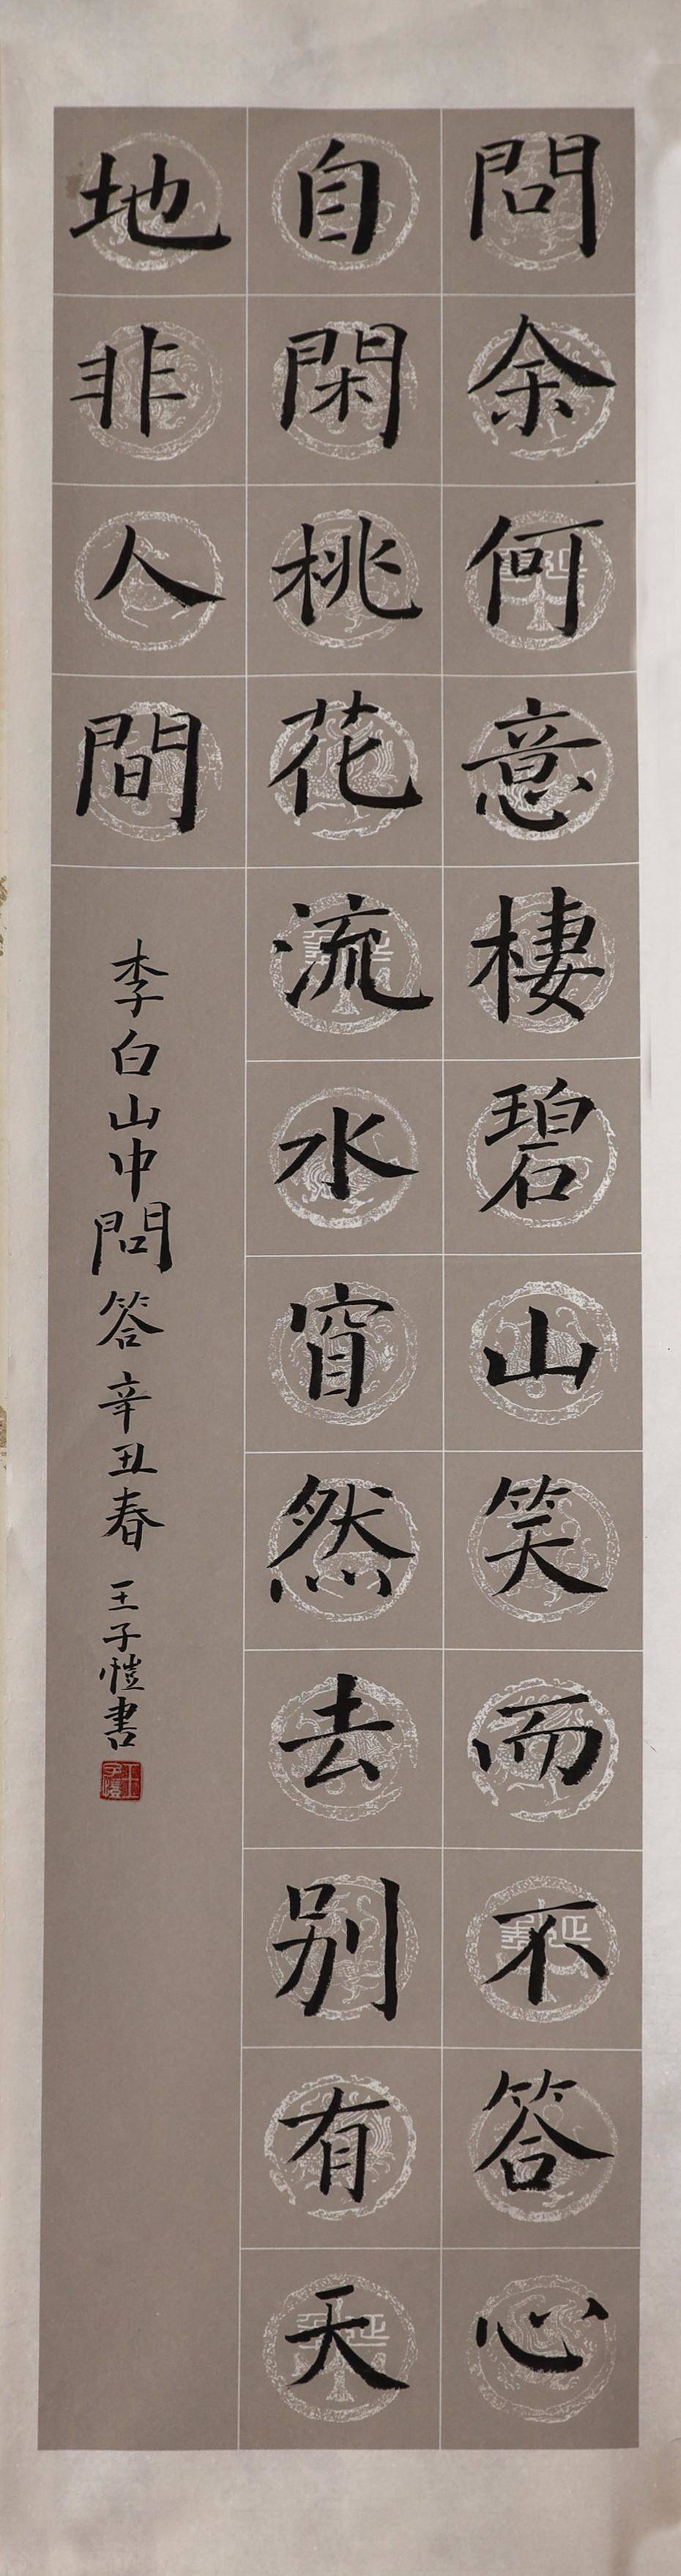 問余何意棲碧山笑而不答心
自閑桃花流水窅然去別有天
地非人間
李白山中問答辛丑春王子愷書
王子愷